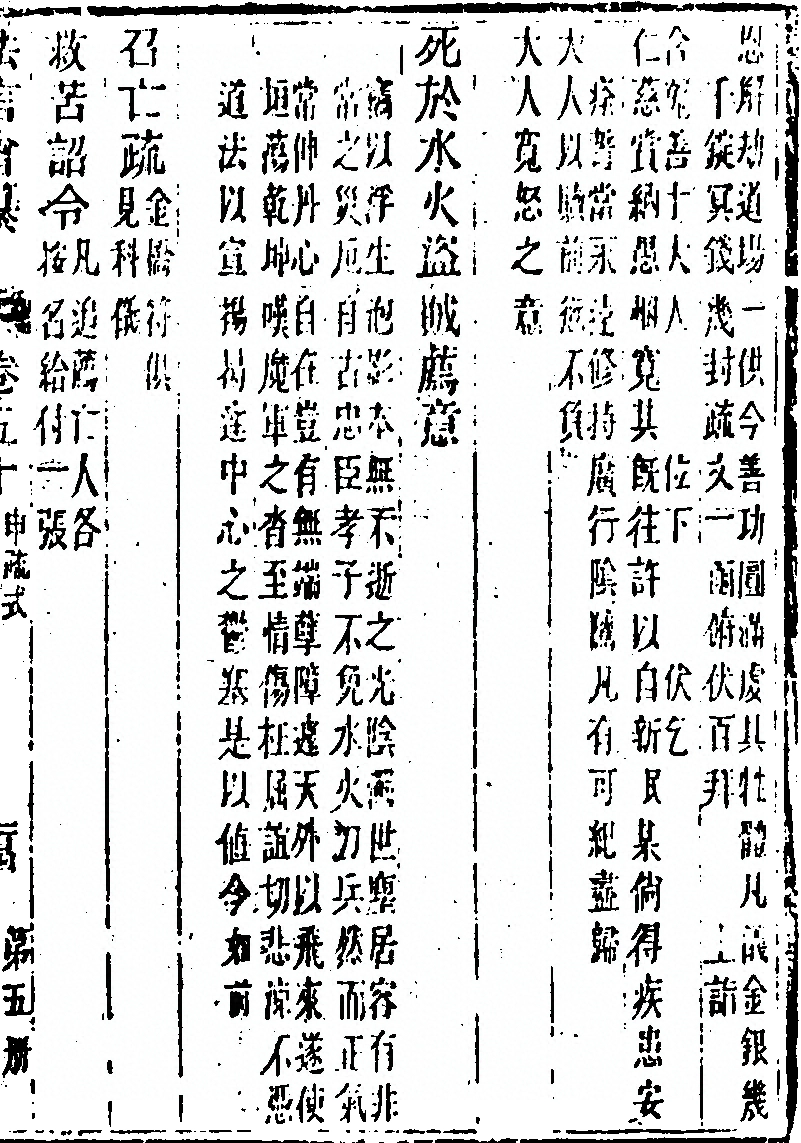 恩解劫道場一供今善功圓滿虔具牲體凡儀金銀幾
千錠冥錢幾封疏文一函俯伏百拜　上詣
合冤善士大人　位下　伏乞
仁慈賓納愚悃寬其既往許以自新民某倘得疾患安
痊誓當永遠修持廣行陰隲凡有可紀盡歸
大人以贖前愆不負
大人寬恕之意
死於水火盜賊薦意
竊以浮生泡影本無不逝之光陰濁世塵居容有非
常之災厄自古忠臣孝子不免水火刀兵然而正氣
常伸丹心自在豈有無端孽障遽天外以飛來遂使
垣萬乾坤嘆魔軍之沓至情傷枉屈誼切悲涼不憑
道法以宣揚曷達中心之鬱是以值今如前
召亡疏見科儀金橋符俱
救苦詔令凡追薦亡人各
按名給付一張
法言會纂　卷五十　申疏式　第五册